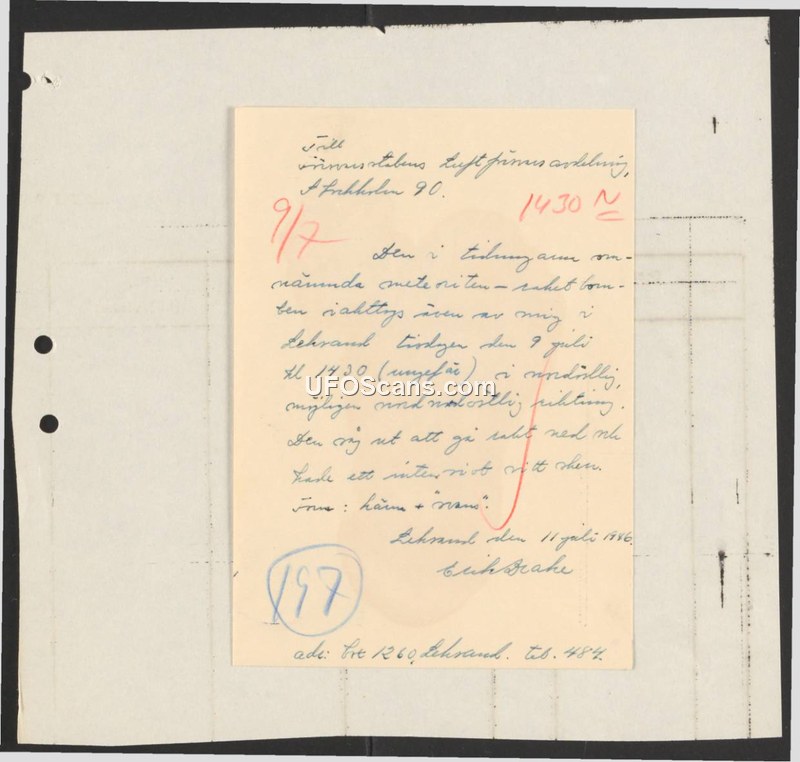 Till
Försvarsstabens Luftförsvarsavdelning,
Stockholm 90.
1430 N
9/7
Den i tidningarna om-
nämnda meteoriten - raket bom-
ben iakttogs även av mig i
Leksand tisdagen den 9 juli
kl 1430 (ungefär) i nordostlig,
möjligen nordnordostlig riktning.
Den såg ut att gå rakt ned och
hade ett intensivt vitt sken.
Form: kärna + "svans".
Leksand den 11 juli 1946.
Erik Drake
197
adr: Box 1260, Leksand. tel. 484.
UFOScans.com